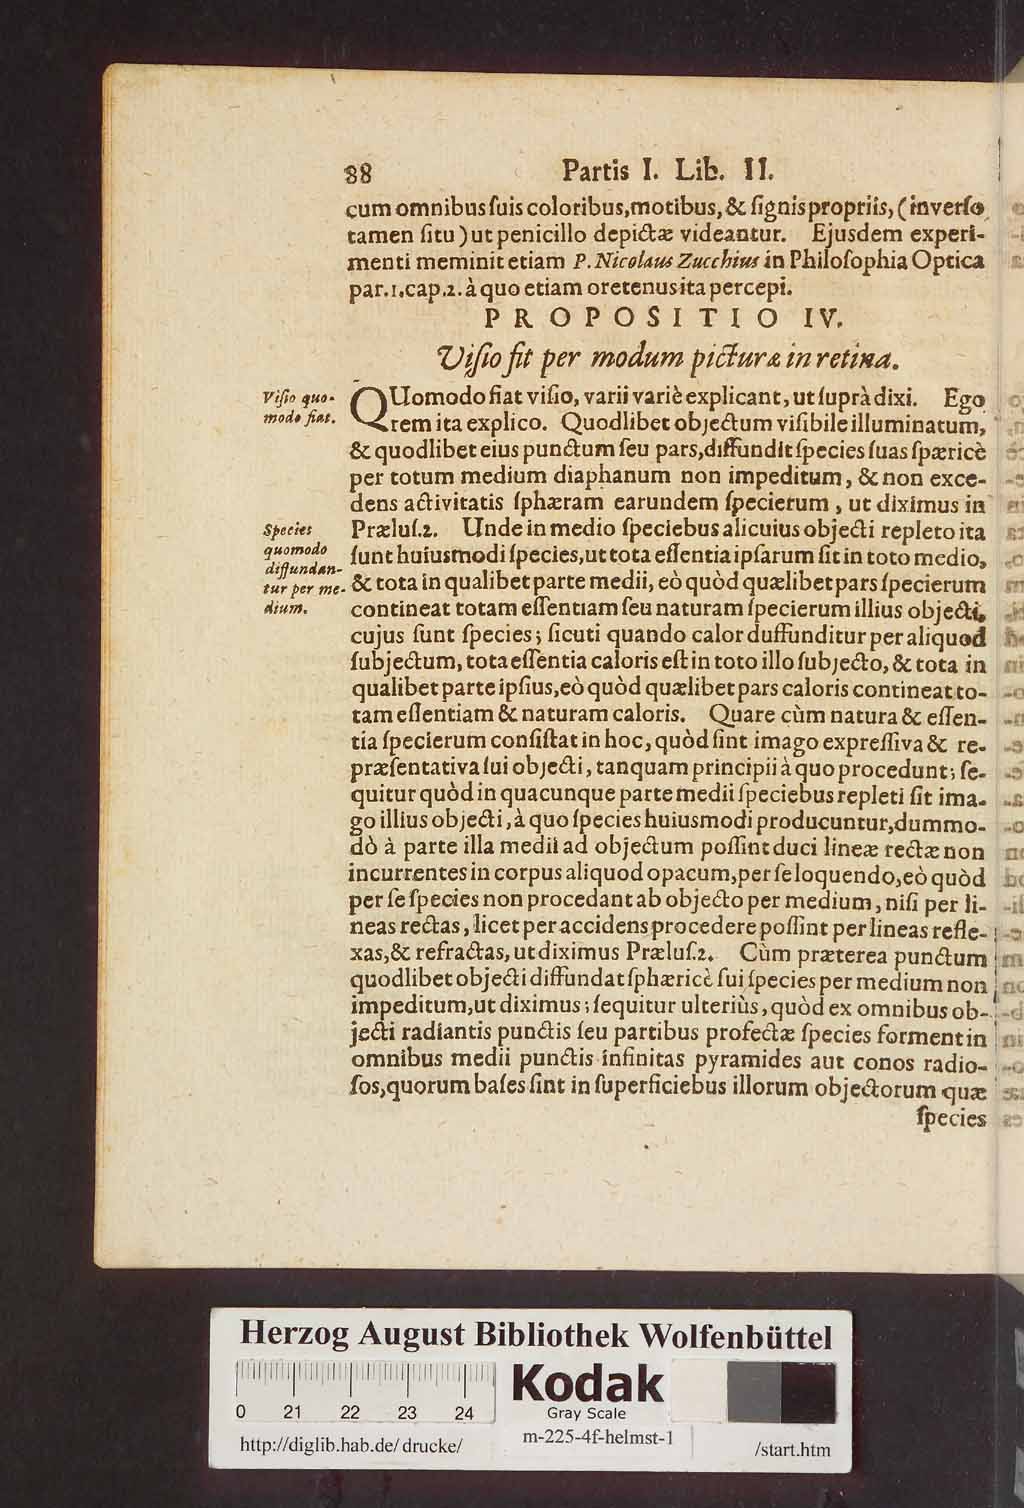 88 Partis I. Lib. II.
cum omnibus ſuis coloribus, motibus, & ſignis propriis, (inverſo
tamen ſitu) ut penicillo depictæ videantur. Ejusdem experi-
menti meminit etiam P. Nicolaus Zucchius in Philoſophia Optica
par. 1. cap. 2. à quo etiam oretenus ita percepi.
PROPOSITIO IV.
Viſio fit per modum picturæ in retina.
Viſio quo-
modo fiat.
QUomodo fiat viſio, varii variè explicant, ut ſuprà dixi. Ego
rem ita explico. Quodlibet objectum viſibile illuminatum,
& quodlibet eius punctum ſeu pars, diffundit ſpecies ſuas ſpæricè
per totum medium diaphanum non impeditum, & non exce-
dens activitatis ſphæram earundem ſpecierum, ut diximus in
Species
quomodo
diffundan-
tur per me-
dium.
Præluſ. 2. Unde in medio ſpeciebus alicuius objecti repleto ita
ſunt huiusmodi ſpecies, ut tota eſſentia ipſarum ſit in toto medio,
& tota in qualibet parte medii, eò quòd quælibet pars ſpecierum
contineat totam eſſentiam ſeu naturam ſpecierum illius objecti,
cujus ſunt ſpecies; ſicuti quando calor duffunditur per aliquod
ſubjectum, tota eſſentia caloris eſt in toto illo ſubjecto, & tota in
qualibet parte ipſius, eò quòd quælibet pars caloris contineat to-
tam eſſentiam & naturam caloris. Quare cùm natura & eſſen-
tia ſpecierum conſiſtat in hoc, quòd ſint imago expreſſiva & re-
præſentativa ſui objecti, tanquam principii à quo procedunt; ſe-
quitur quòd in quacunque parte medii ſpeciebus repleti ſit ima-
go illius objecti, à quo ſpecies huiusmodi producuntur, dummo-
dò à parte illa medii ad objectum poſſint duci lineæ rectæ non
incurrentes in corpus aliquod opacum, per ſe loquendo, eò quòd
per ſe ſpecies non procedant ab objecto per medium, niſi per li-
neas rectas, licet per accidens procedere poſſint per lineas refle-
xas, & refractas, ut diximus Præluſ. 2. Cùm præterea punctum
quodlibet objecti diffundat ſphæricè ſui ſpecies per medium non
impeditum, ut diximus; ſequitur ulteriùs, quòd ex omnibus ob-
jecti radiantis punctis ſeu partibus profectæ ſpecies forment in
omnibus medii punctis infinitas pyramides aut conos radio-
ſos, quorum baſes ſint in ſuperficiebus illorum objectorum quæ
ſpecies
Herzog August Bibliothek Wolfenbüttel
0 21 22 23 24
Kodak
Gray Scale
http://diglib.hab.de/drucke/ m-225-4f-helmst-1 /start.htm